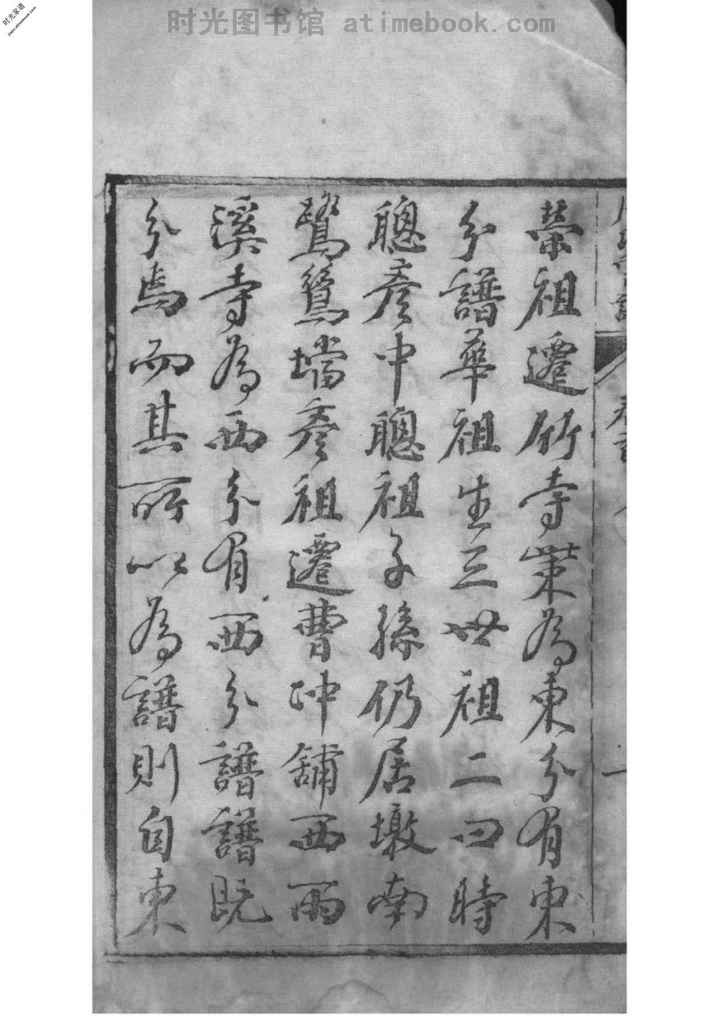 时光图书馆 atimebook.com
时光家谱
www.atimebook.com
榮祖遷竹寺業為東分有東
分譜華祖生三世祖二曰時
聰彥中聰祖子孫仍居墩南
鷺鷥壋彥祖遷曹沖舖西雨
溪寺為西分有西分譜譜既
分焉而其所以為譜則自東